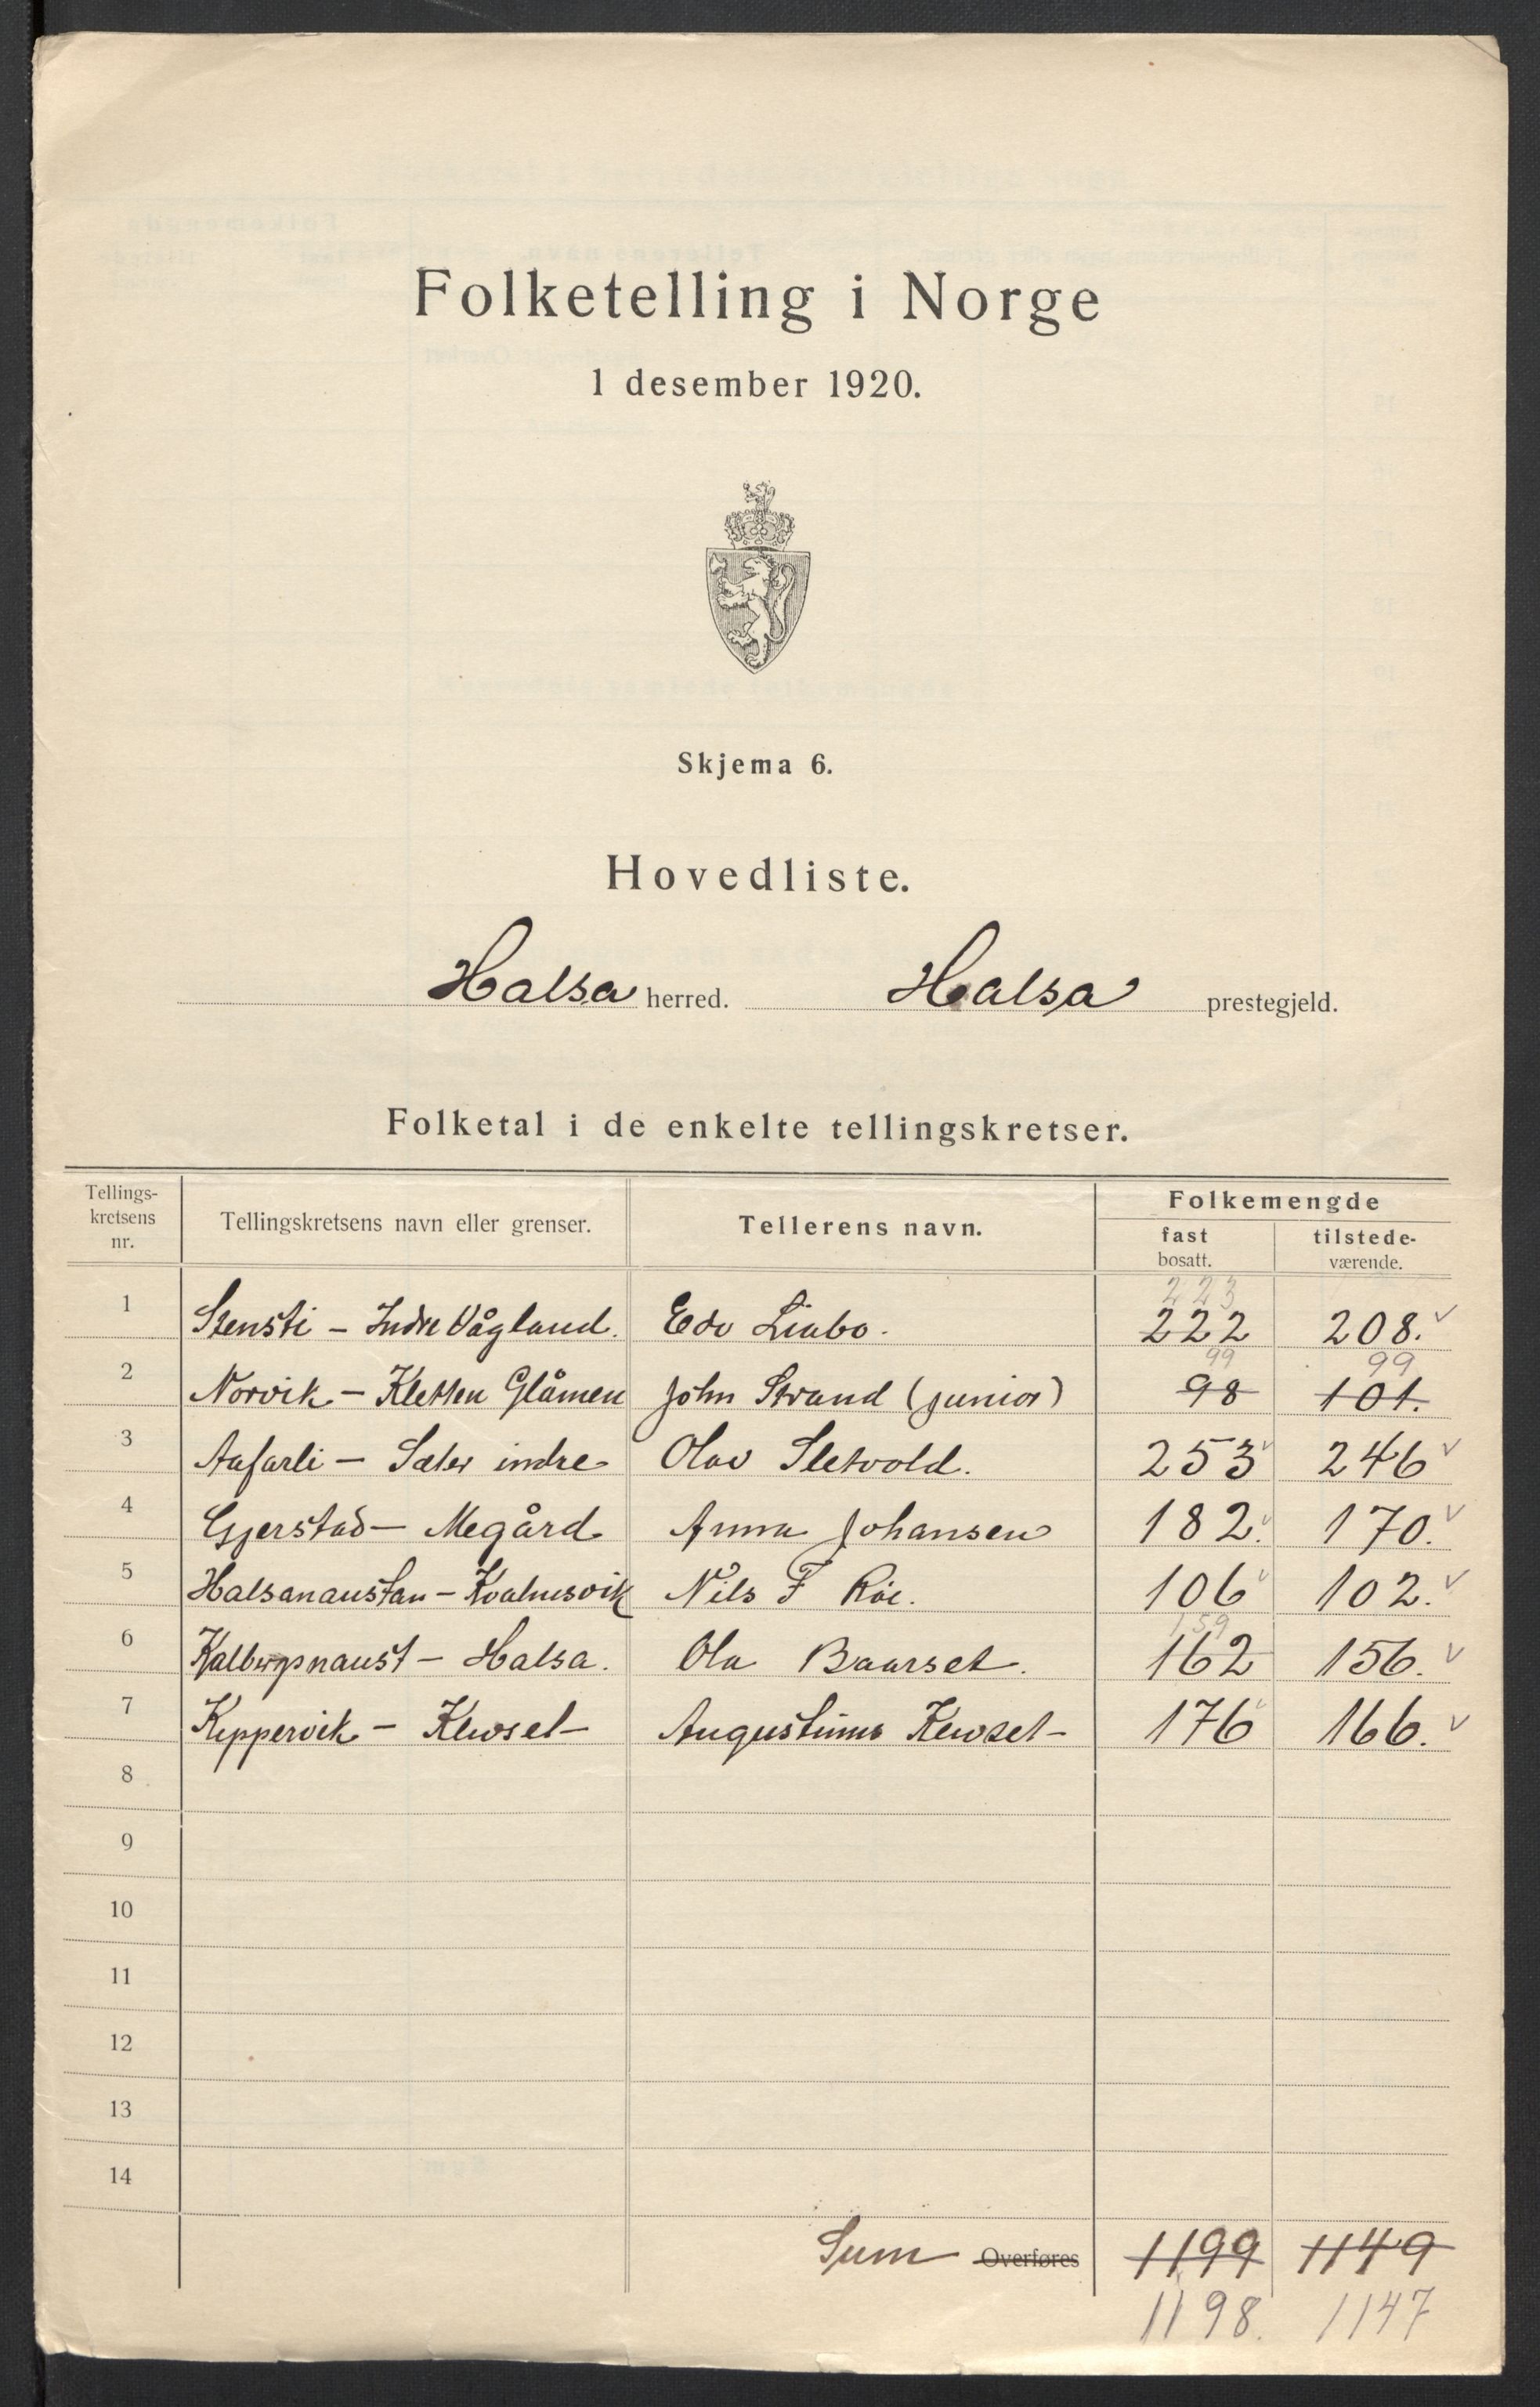 Folketelling i Norge
1 desember 1920.
Skjema 6.
Hovedliste.
Halsa herred. Halsa prestegjeld.
Folketal i de enkelte tellingskretser.
Tellings-
kretsens
nr.
Tellingskretsens navn eller grenser.
Tellerens navn.
Folkemengde
fast
bosatt.
tilstede-
værende.
223
1 Stensti – Indre Vågland. Edv Liabø. 222 208. ✓
99 99
2 Norvik – Kletten Glåmen John Strand (junior) 98 101.
3 Aafarli – Sæter indre Olav Sletvold. 253 ✓ 246 ✓
4 Gjerstad – Megård Anna Johansen 182. ✓ 170. ✓
5 Halsanaustan – Kvalnesvik Nils F Røe. 106 ✓ 102. ✓
159
6 Kalbergsnaust – Halsa. Ola Baarset. 162 156. ✓
7 Keppervik – Klevset Augustinus Klevset 176 ✓ 166. ✓
8
9
10
11
12
13
14
Sum Overføres 1199 1149
1198. 1147